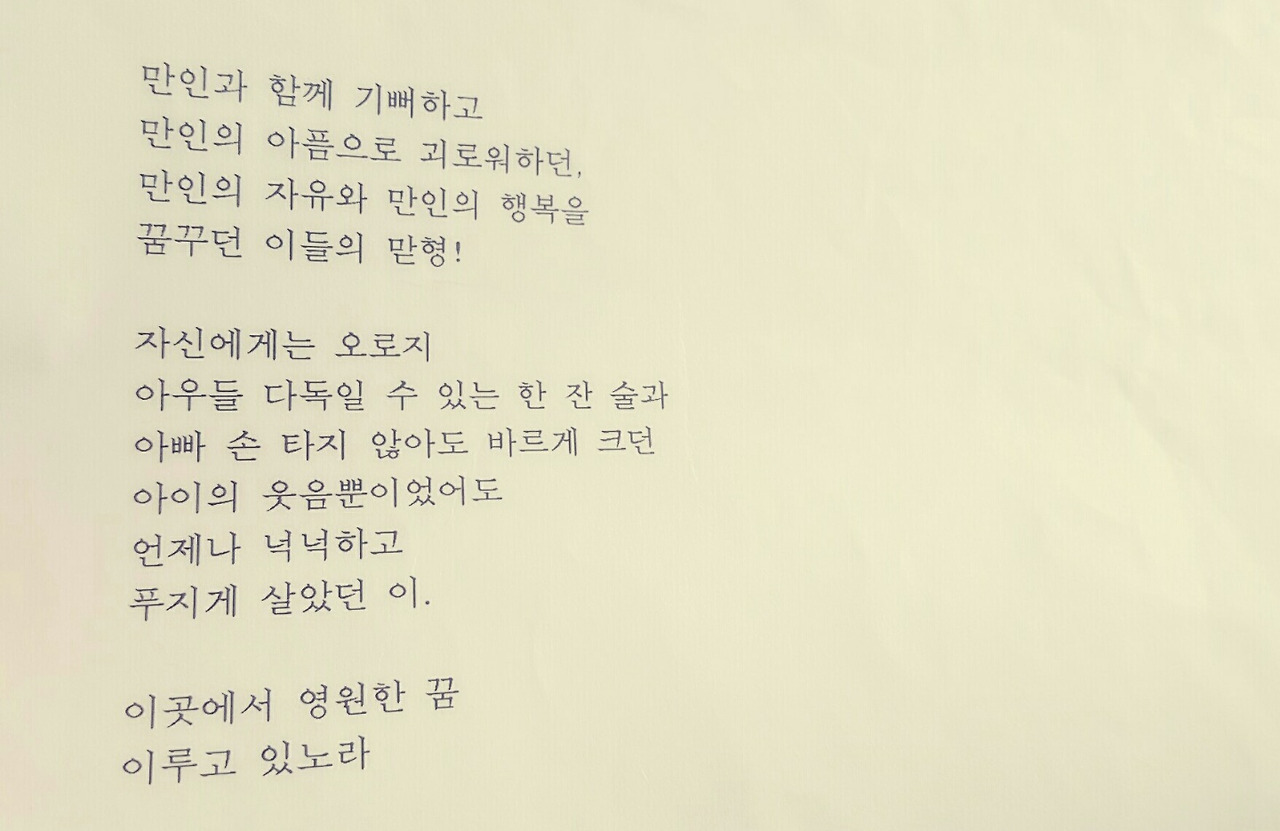 만인과 함께 기뻐하고
만인의 아픔으로 괴로워하던,
만인의 자유와 만인의 행복을
꿈꾸던 이들의 맏형!
자신에게는 오로지
아우들 다독일 수 있는 한 잔 술과
아빠 손 타지 않아도 바르게 크던
아이의 웃음뿐이었어도
언제나 넉넉하고
푸지게 살았던 이.
이곳에서 영원한 꿈
이루고 있노라